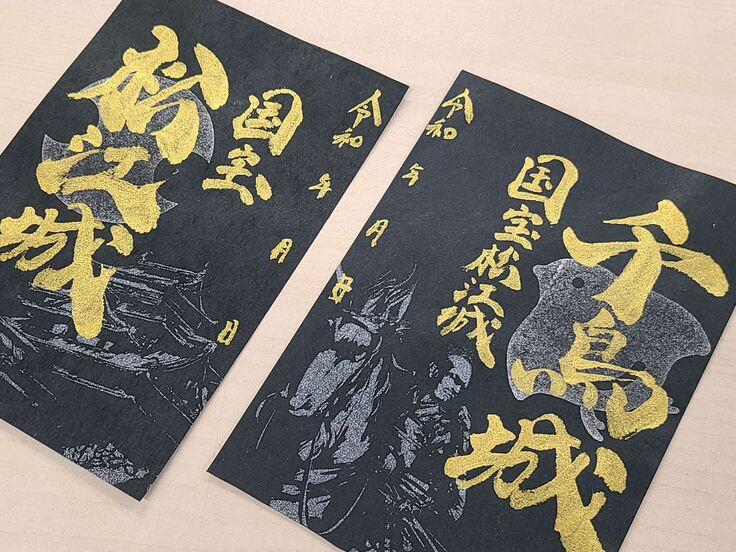 松江城
国宝
令和 年 月 日
令和 年 月 日
国宝松江城
千鳥城